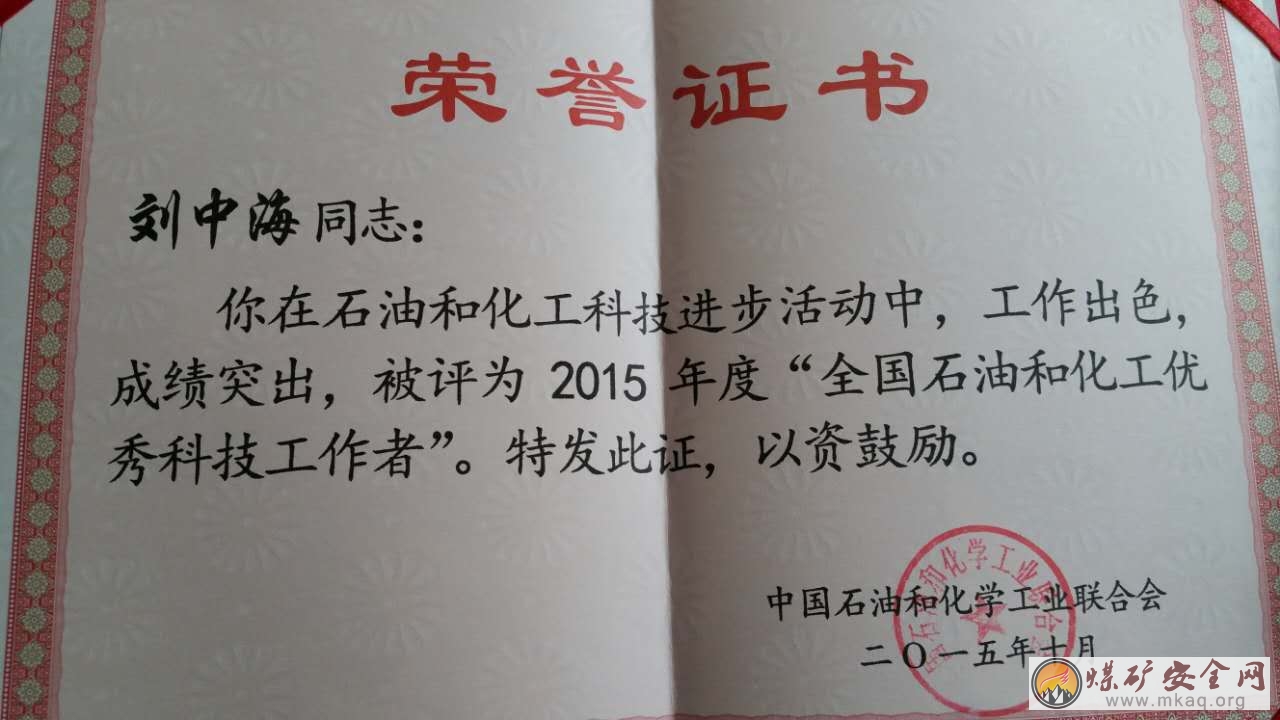 荣誉证书
刘中海同志：
你在石油和化工科技进步活动中，工作出色，
成绩突出，被评为 2015 年度“全国石油和化工优
秀科技工作者”。特发此证，以资鼓励。
中国石油和化学工业联合会
二〇一五年十月
石油和化学工业联合会
煤矿安全网
www.mkaq.org